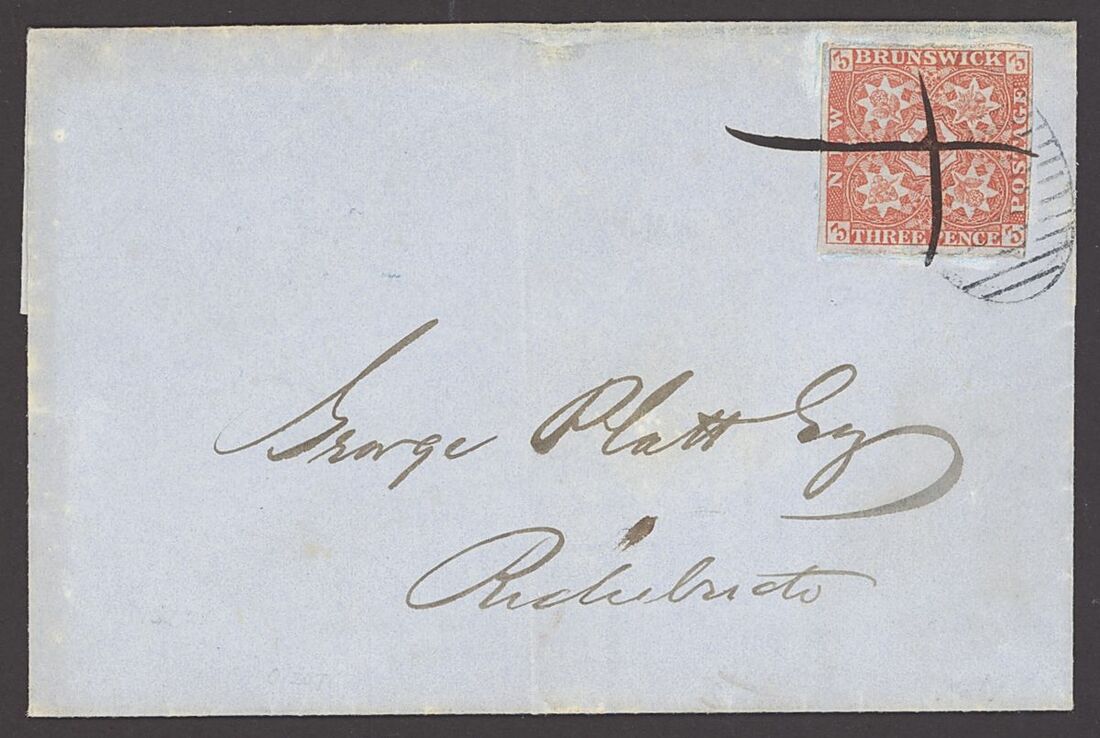 3 BRUNSWICK 3
NEW
POSTAGE
3 THREE PENCE 3
George Platt Esq
Richibucto